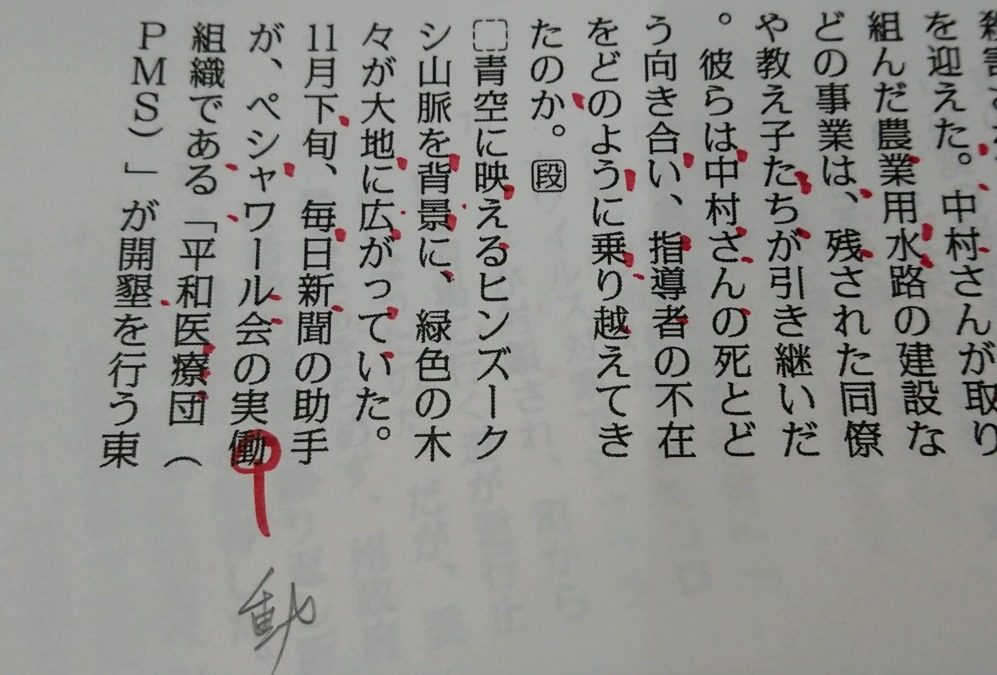 を迎えた。中村さんが取り
組んだ農業用水路の建設な
どの事業は、残された同僚
や教え子たちが引き継いだ
。彼らは中村さんの死とど
う向き合い、指導者の不在
をどのように乗り越えてき
たのか。段
青空に映えるヒンズーク
シ山脈を背景に、緑色の木
々が大地に広がっていた。
11月下旬、毎日新聞の助手
が、ペシャワール会の実働
組織である「平和医療団（
PMS）」が開墾を行う東
動